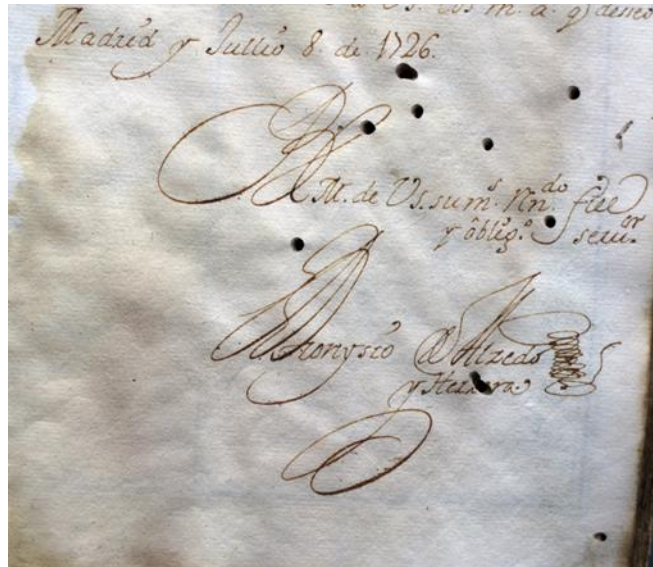 Vs. los m. a. q) deseo
Madrid y Jullio 8 de 1726.
B
L M. de Vs. sum.s Rn.do fiel
y oblig.o seru.or
Dionysio de Alzedo
y Herrera